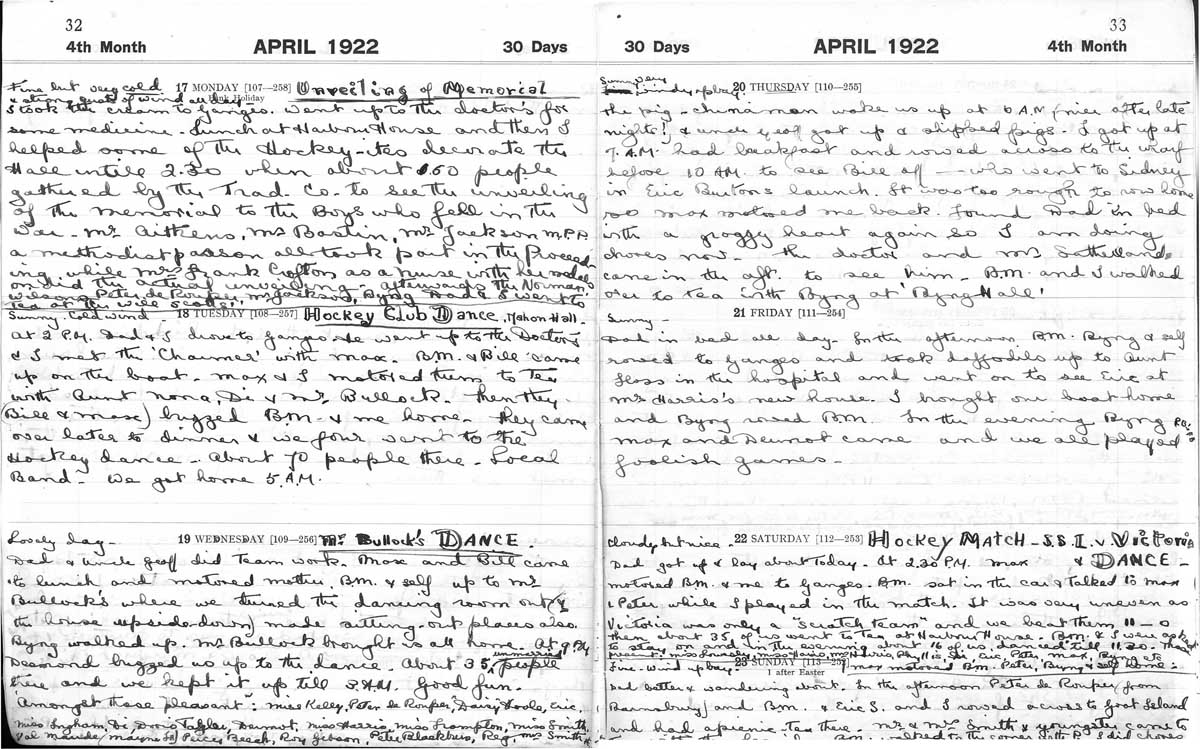 32
4th Month APRIL 1922 30 Days
Fine but very cold 17 MONDAY [107—258] Unveiling of Memorial
& strong gusts of wind all day Bank Holiday
I took the cream to Ganges. Went up to the doctor's for
some medicine. Lunch at Harbour House and then I
helped some of the Hockey-ites decorate the
Hall until 2.30 when about 160 people
gathered by the Trad. Co. to see the unveiling
of the memorial to the Boys who fell in the
War. Mr Aitkens, Mr Bastin, Mr Jackson M.P.P.
a methodist parson all took part in the Proceed-
ing, while Mrs Frank Crofton as a nurse with her medals
on did the actual unveiling - afterwards the Normans,
Wilsons, Peter de Roupier, Mr Jackson, Byng, Dad & I went to
tea at the Will Scotts'.
Sunny Cold wind 18 TUESDAY [108—257] Hockey Club Dance, Mahon Hall.
At 2 P.M. Dad & I drove to Ganges. He went up to the Doctor's
& I met the 'Charmer' with Max. B.M. & Bill came
up on the boat. Max & I motored them to Tea
with Aunt Nona, Di & Mr Bullock. Then they
(Bill & Max) bugged B.M. & me home. They came
over later to dinner & we four went to the
Hockey dance. About 70 people there. Local
Band. We got home 5 A.M.
Lovely day - 19 WEDNESDAY [109—256] Mr Bullock's DANCE.
Dad & Uncle Geoff did Team work. Max and Bill came
to lunch and motored Mother, B.M. & self up to Mr
Bullock's where we turned the dancing room out (&
the house upside down) made sitting-out places also.
Byng walked up. Mr Bullock brought us all home. At 9 P.M.
Desmond bugged us up to the dance. About 35 unmarried people
there and we kept it up till 3 A.M. Good fun.
Amongst those present: Miss Kelly, Peter de Roupier, Daisy, Eric,
Miss Ingham, Di, Doris Taylor, Dermot, Miss Harris, Miss Frampton, Miss Smith
Val, Maude, Price, Beech, Roy Gibson, Peter Blackburn, Reg, Mrs Smith
33
30 Days APRIL 1922 4th Month
Sunny very windy up bay. 20 THURSDAY [110—255]
The pig-chinaman woke us up at 6 A.M. (nice after late
nights!) & Uncle Geoff got up & shipped pigs. I got up at
7 A.M. had breakfast and rowed across to the wharf
before 10 A.M. to see Bill off — who went to Sidney
in Eric Burton's launch. It was too rough to row home
so Max motored me back. Found Dad in bed
with a groggy heart again so I am doing
chores now. The doctor and Mrs Sutherland
came in the aft. to see him. B.M. and I walked
over to tea with Byng at 'Byng Hall'
Sunny - 21 FRIDAY [111—254]
Dad in bed all day. In the afternoon B.M. Byng & self
rowed to Ganges and took daffodils up to Aunt
Floss in the hospital and went on to see Eric at
Mrs Harris's new house. I brought one boat home
and Byng rowed B.M. In the evening Byng
Max and Dermot came and we all played
foolish games -
Cloudy but nice. 22 SATURDAY [112—253] Hockey Match - S.S.I. v Victoria
Dad got up & lay about today. At 2.30 P.M. Max & DANCE -
motored B.M. & me to Ganges. B.M. sat in the car & talked to Max
& Peter while I played in the match. It was very uneven as
Victoria was only a "scratch team" and we beat them 11—0
Then about 35 of us went to Tea at Harbour House. B.M. & I were asked
to stay on and in the evening about 16 of us danced till 11.30. Those
present: Miss Miss Harris, Di, Eric, Peter, Max,
Max motored B.M. Peter, Byng & self home.
Fine - wind up bay. 23 SUNDAY [113—252]
1 after Easter
Dad better & wandering about. In the afternoon Peter de Roupier (from
Barnsbury) and B.M. & Eric S. and I rowed across to Goat Island
and had a picnic tea there. Mr & Mrs Smith & youngster came to